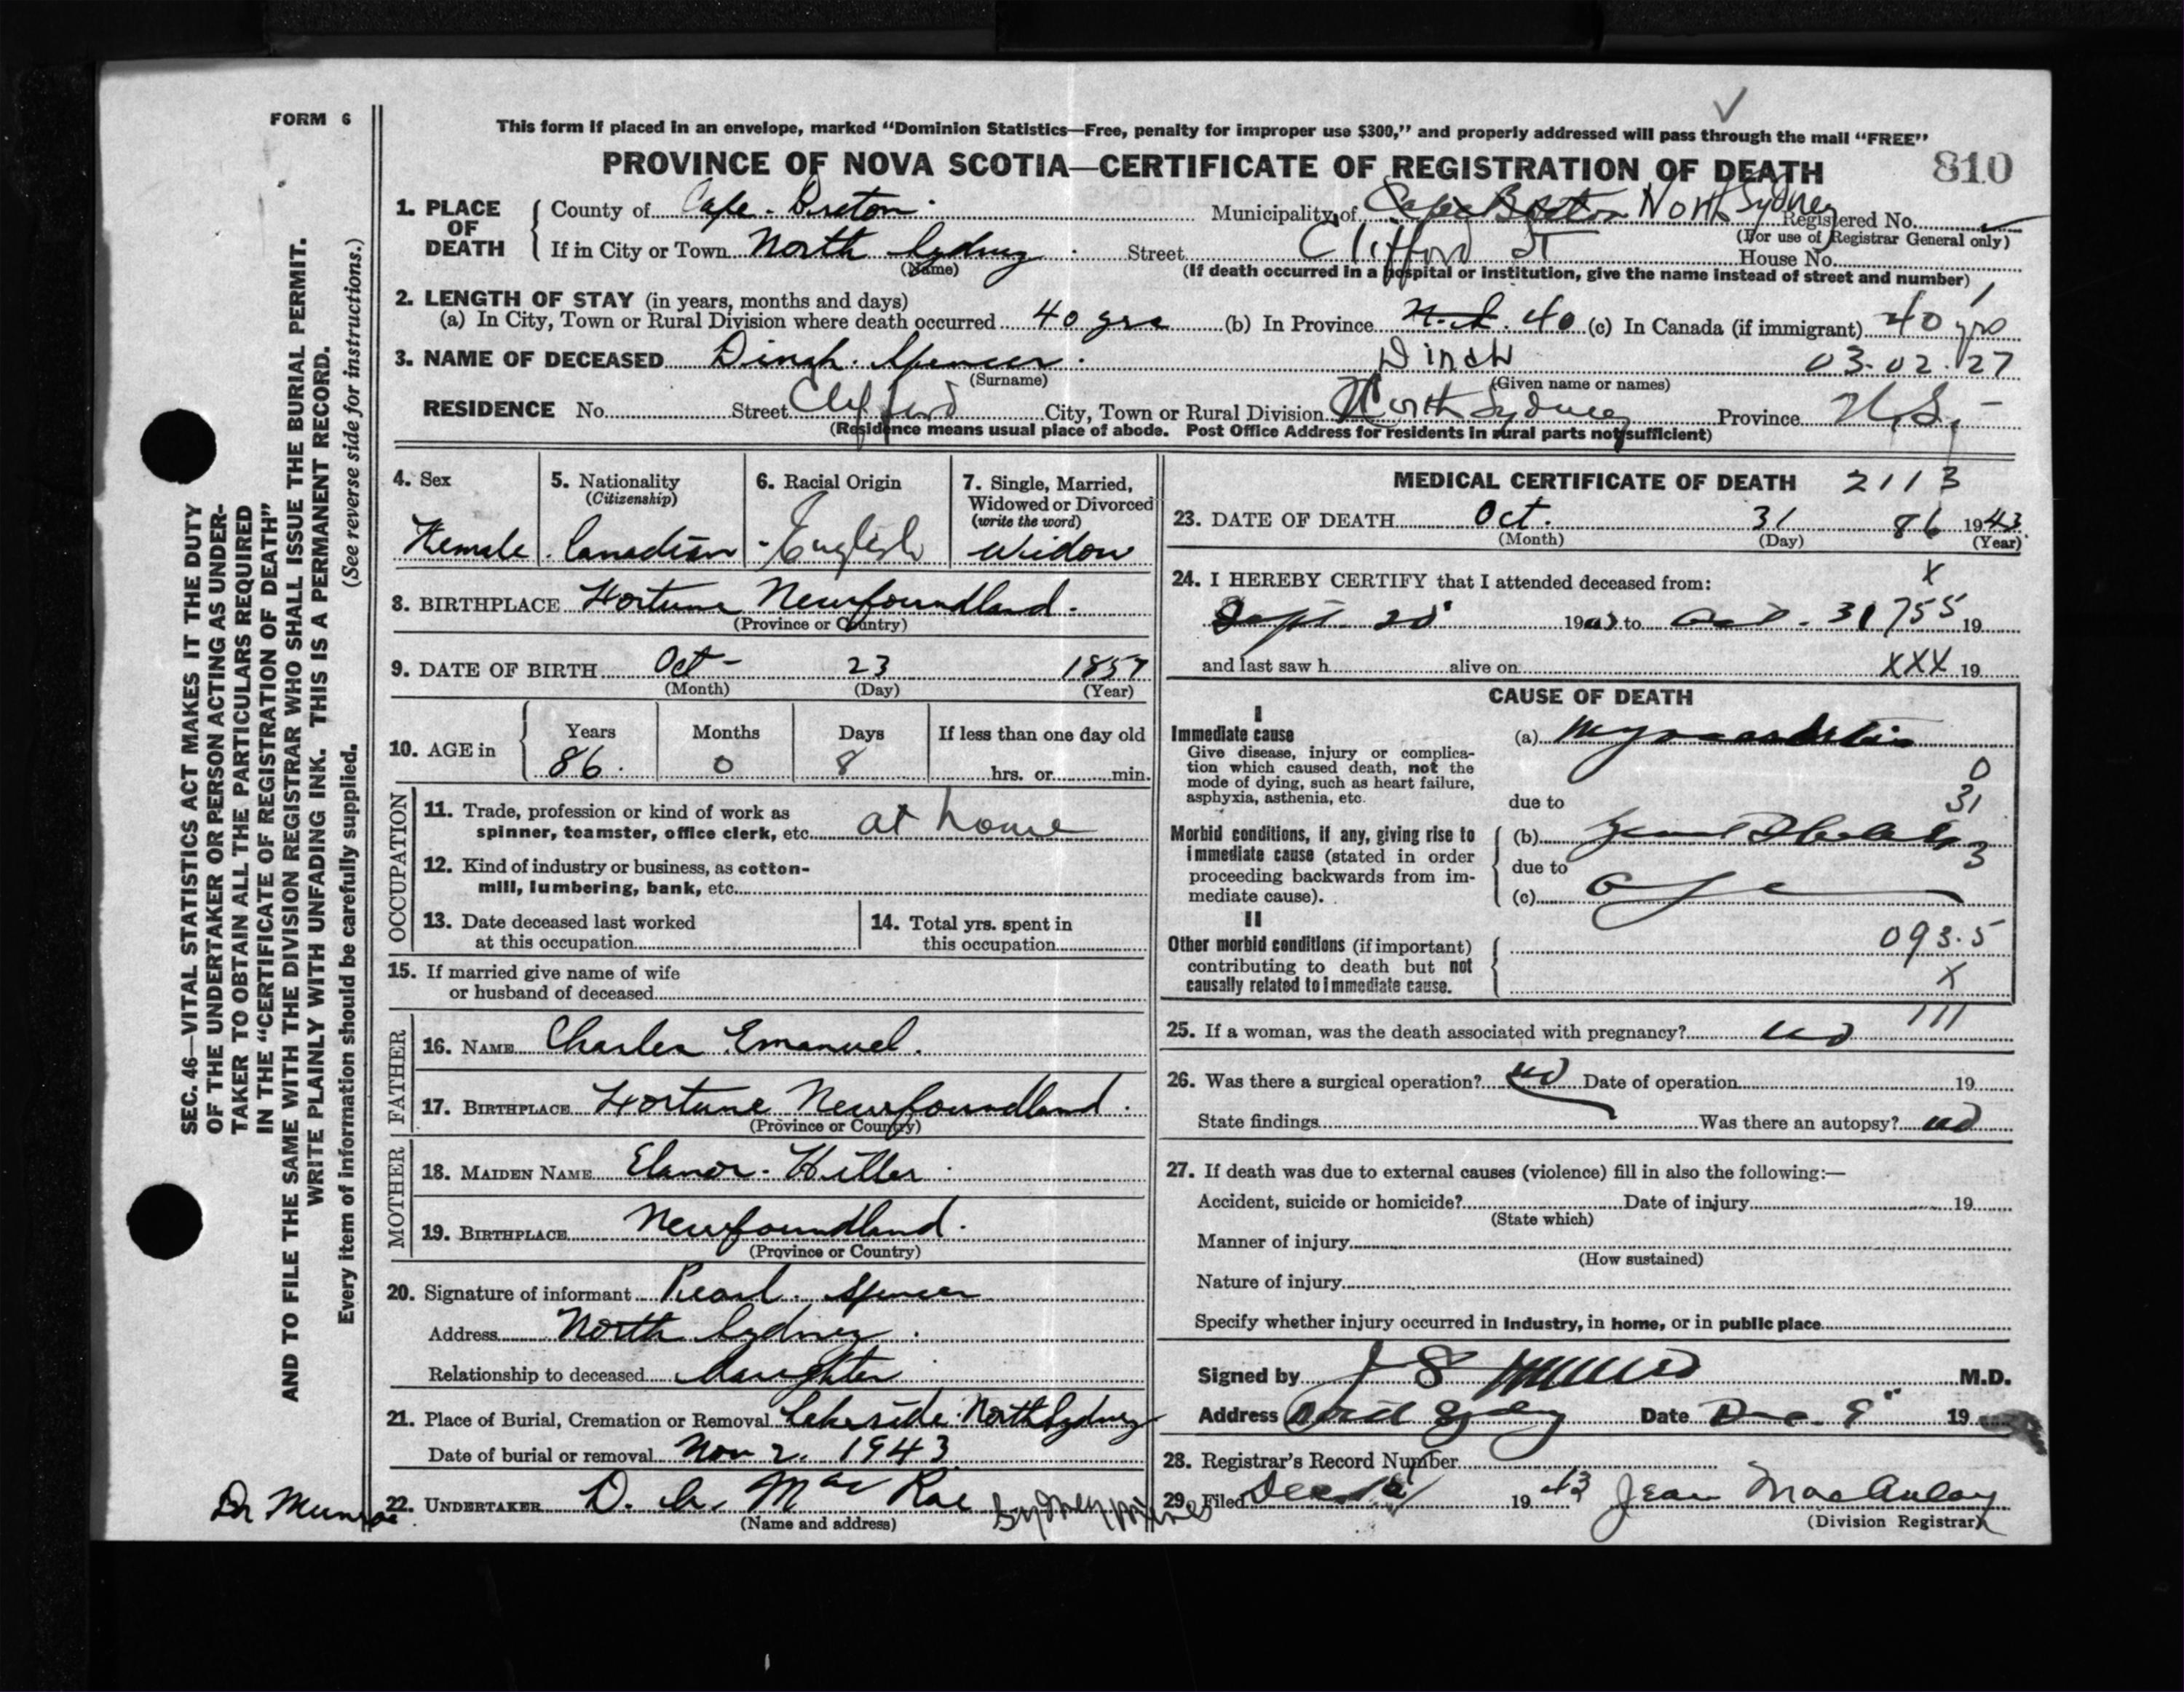 FORM 6
This form if placed in an envelope, marked "Dominion Statistics—Free, penalty for improper use $300," and properly addressed will pass through the mail "FREE"
PROVINCE OF NOVA SCOTIA—CERTIFICATE OF REGISTRATION OF DEATH 810
1. PLACE OF DEATH
County of Cape Breton Municipality of Cape Breton North Sydney Registered No.
(For use of Registrar General only)
If in City or Town North Sydney Street Clifford St House No.
(Name) (If death occurred in a hospital or institution, give the name instead of street and number)
2. LENGTH OF STAY (in years, months and days)
(a) In City, Town or Rural Division where death occurred 40 yrs (b) In Province 40 (c) In Canada (if immigrant) 40 yrs
3. NAME OF DECEASED Dinah Spencer Dinah 03.02.27
(Surname) (Given name or names)
RESIDENCE No. Street Clifford City, Town or Rural Division North Sydney Province N.S.
(Residence means usual place of abode. Post Office Address for residents in rural parts not sufficient)
4. Sex 5. Nationality (Citizenship) 6. Racial Origin 7. Single, Married, Widowed or Divorced (write the word)
Female Canadian English Widow
8. BIRTHPLACE Fortune Newfoundland
(Province or Country)
9. DATE OF BIRTH Oct 23 1857
(Month) (Day) (Year)
10. AGE in Years Months Days If less than one day old
86 0 8 hrs. or min.
OCCUPATION
11. Trade, profession or kind of work as
spinner, teamster, office clerk, etc. at home
12. Kind of industry or business, as cotton-
mill, lumbering, bank, etc.
13. Date deceased last worked
at this occupation
14. Total yrs. spent in
this occupation
15. If married give name of wife
or husband of deceased
FATHER
16. NAME Charles Emanuel
17. BIRTHPLACE Fortune Newfoundland
(Province or Country)
MOTHER
18. MAIDEN NAME Elanor Hiller
19. BIRTHPLACE Newfoundland
(Province or Country)
20. Signature of informant Pearl Spencer
Address North Sydney
Relationship to deceased Daughter
21. Place of Burial, Cremation or Removal Lakeside North Sydney
Date of burial or removal Nov 2, 1943
22. UNDERTAKER D. A. Mac Rae Sydney Mines
(Name and address)
Dr Munroe
MEDICAL CERTIFICATE OF DEATH 2113
23. DATE OF DEATH Oct. 31 86 1943
(Month) (Day) (Year)
x
24. I HEREBY CERTIFY that I attended deceased from:
Sept. 20 19 to Oct. 31 755 19
and last saw h alive on XXX 19
CAUSE OF DEATH
I
Immediate cause (a) Myocarditis
Give disease, injury or complica-
tion which caused death, not the
mode of dying, such as heart failure,
asphyxia, asthenia, etc.
0
31
3
due to
Morbid conditions, if any, giving rise to
immediate cause (stated in order
proceeding backwards from im-
mediate cause).
(b)
due to
(c) Age
II
Other morbid conditions (if important)
contributing to death but not
causally related to immediate cause.
093.5
x
111
25. If a woman, was the death associated with pregnancy? no
26. Was there a surgical operation? no Date of operation 19
State findings Was there an autopsy? no
27. If death was due to external causes (violence) fill in also the following:—
Accident, suicide or homicide? Date of injury 19
(State which)
Manner of injury
(How sustained)
Nature of injury
Specify whether injury occurred in Industry, in home, or in public place
Signed by J S Munro M.D.
Address North Sydney Date Dec. 9 19
28. Registrar's Record Number
29. Filed Dec 1943 Jean MacAulay
(Division Registrar)
SEC. 46—VITAL STATISTICS ACT MAKES IT THE DUTY
OF THE UNDERTAKER OR PERSON ACTING AS UNDER-
TAKER TO OBTAIN ALL THE PARTICULARS REQUIRED
IN THE "CERTIFICATE OF REGISTRATION OF DEATH"
AND TO FILE THE SAME WITH THE DIVISION REGISTRAR WHO SHALL ISSUE THE BURIAL PERMIT.
WRITE PLAINLY WITH UNFADING INK. THIS IS A PERMANENT RECORD.
Every item of information should be carefully supplied. (See reverse side for instructions.)